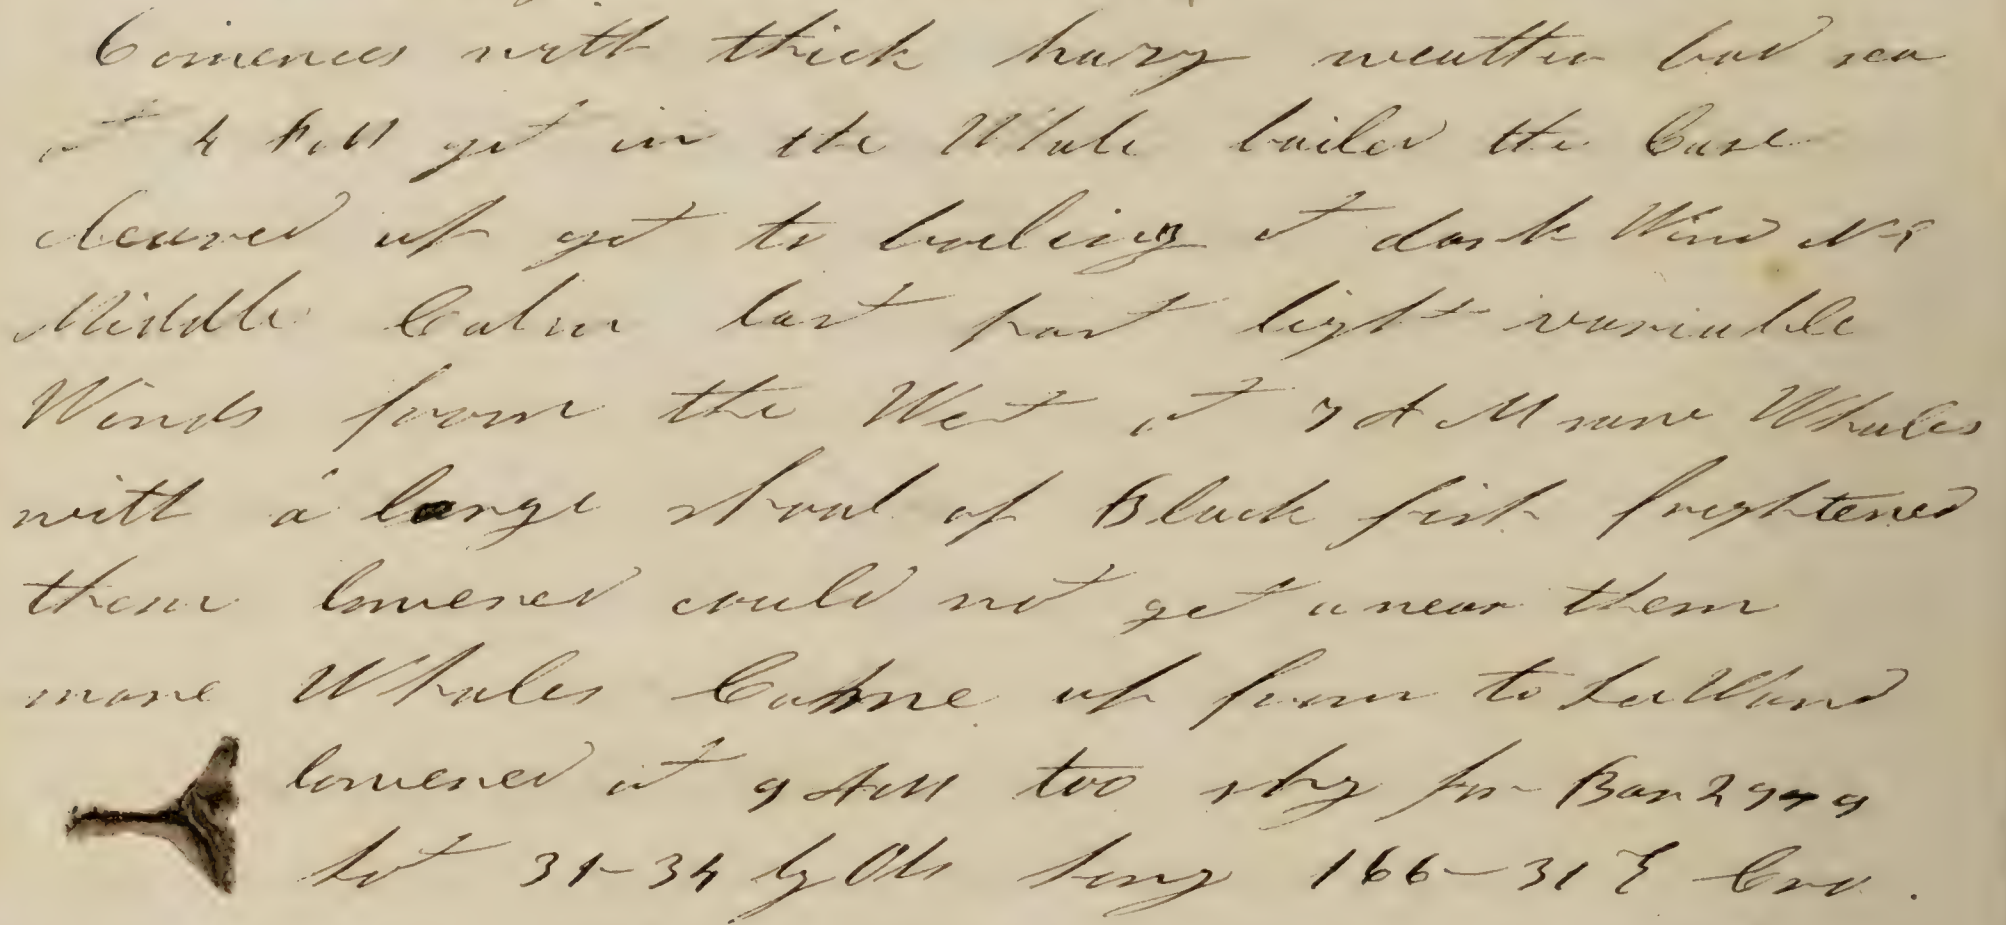 Comences with thick hazy weather bad sea
at 4 P.M got in the Whale bailed the Case
cleared up got to boiling at dark Wind
Middle Calm last part light variable
Winds from the West at 7 A M saw Whales
with a large shoal of Black fish frightened
them lowered could not get anear them
more Whales Came up from to LeWard
lowered at 9 AM too shy for Bar 2949
Lat 31-34 by Obs Long 166-31 E